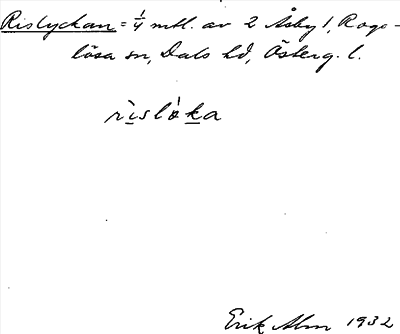 Rislyckan = 1/4 mtl. av 2 Åsby 1, Rogs-
lösa sn, Dals hd, Österg. l.
rìslòka
Erik Alm 1932